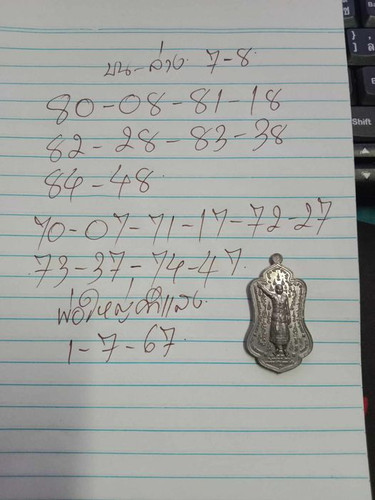 บน-ล่าง 7-8.
80-08-81-18
82-28-83-38
84-48
70-07-71-17-72-27
73-37-74-47.
พ่อใหญ่คำแสง.
1-7-67.
Shift